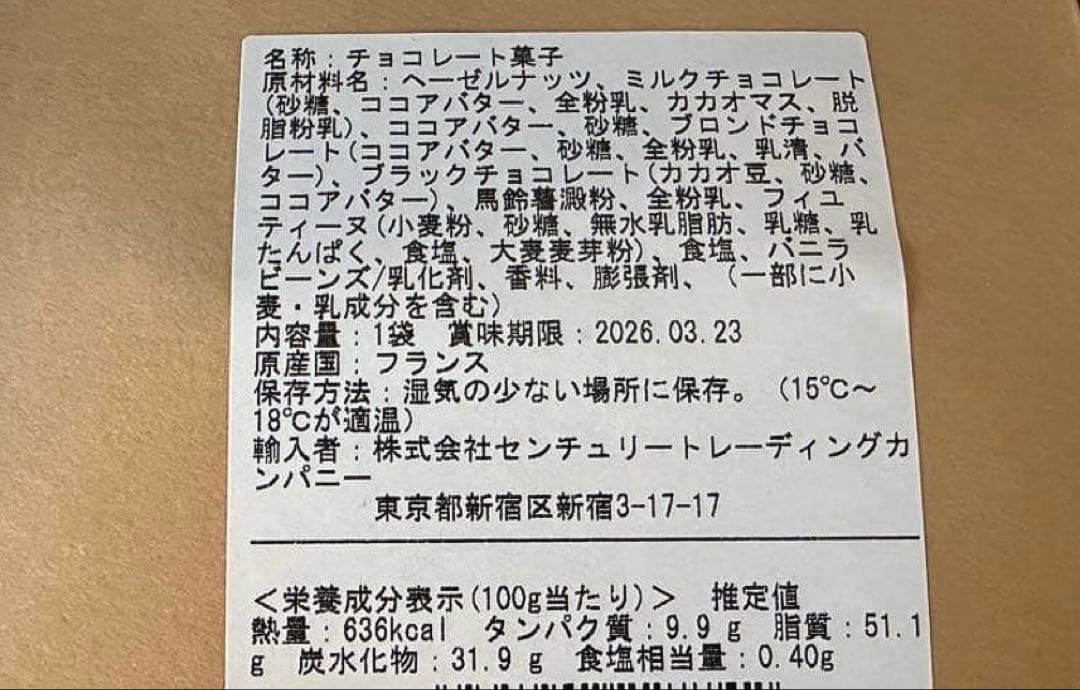 名称：チョコレート菓子
原材料名：ヘーゼルナッツ、ミルクチョコレート
(砂糖、ココアバター、全粉乳、カカオマス、脱
脂粉乳)、ココアバター、砂糖、ブロンドチョコ
レート(ココアバター、砂糖、全粉乳、乳清、バ
ター)、ブラックチョコレート(カカオ豆、砂糖、
ココアバター)、馬鈴薯澱粉、全粉乳、フィユ
ティーヌ(小麦粉、砂糖、無水乳脂肪、乳糖、乳
たんぱく、食塩、大麦麦芽粉)、食塩、バニラ
ビーンズ/乳化剤、香料、膨張剤、（一部に小
麦・乳成分を含む）
内容量：1袋　賞味期限：2026.03.23
原産国：フランス
保存方法：湿気の少ない場所に保存。（15℃～
18℃が適温）
輸入者：株式会社センチュリートレーディングカ
ンパニー
東京都新宿区新宿3-17-17
＜栄養成分表示(100g当たり)＞　推定値
熱量：636kcal　タンパク質：9.9 g　脂質：51.1
g　炭水化物：31.9 g　食塩相当量：0.40g